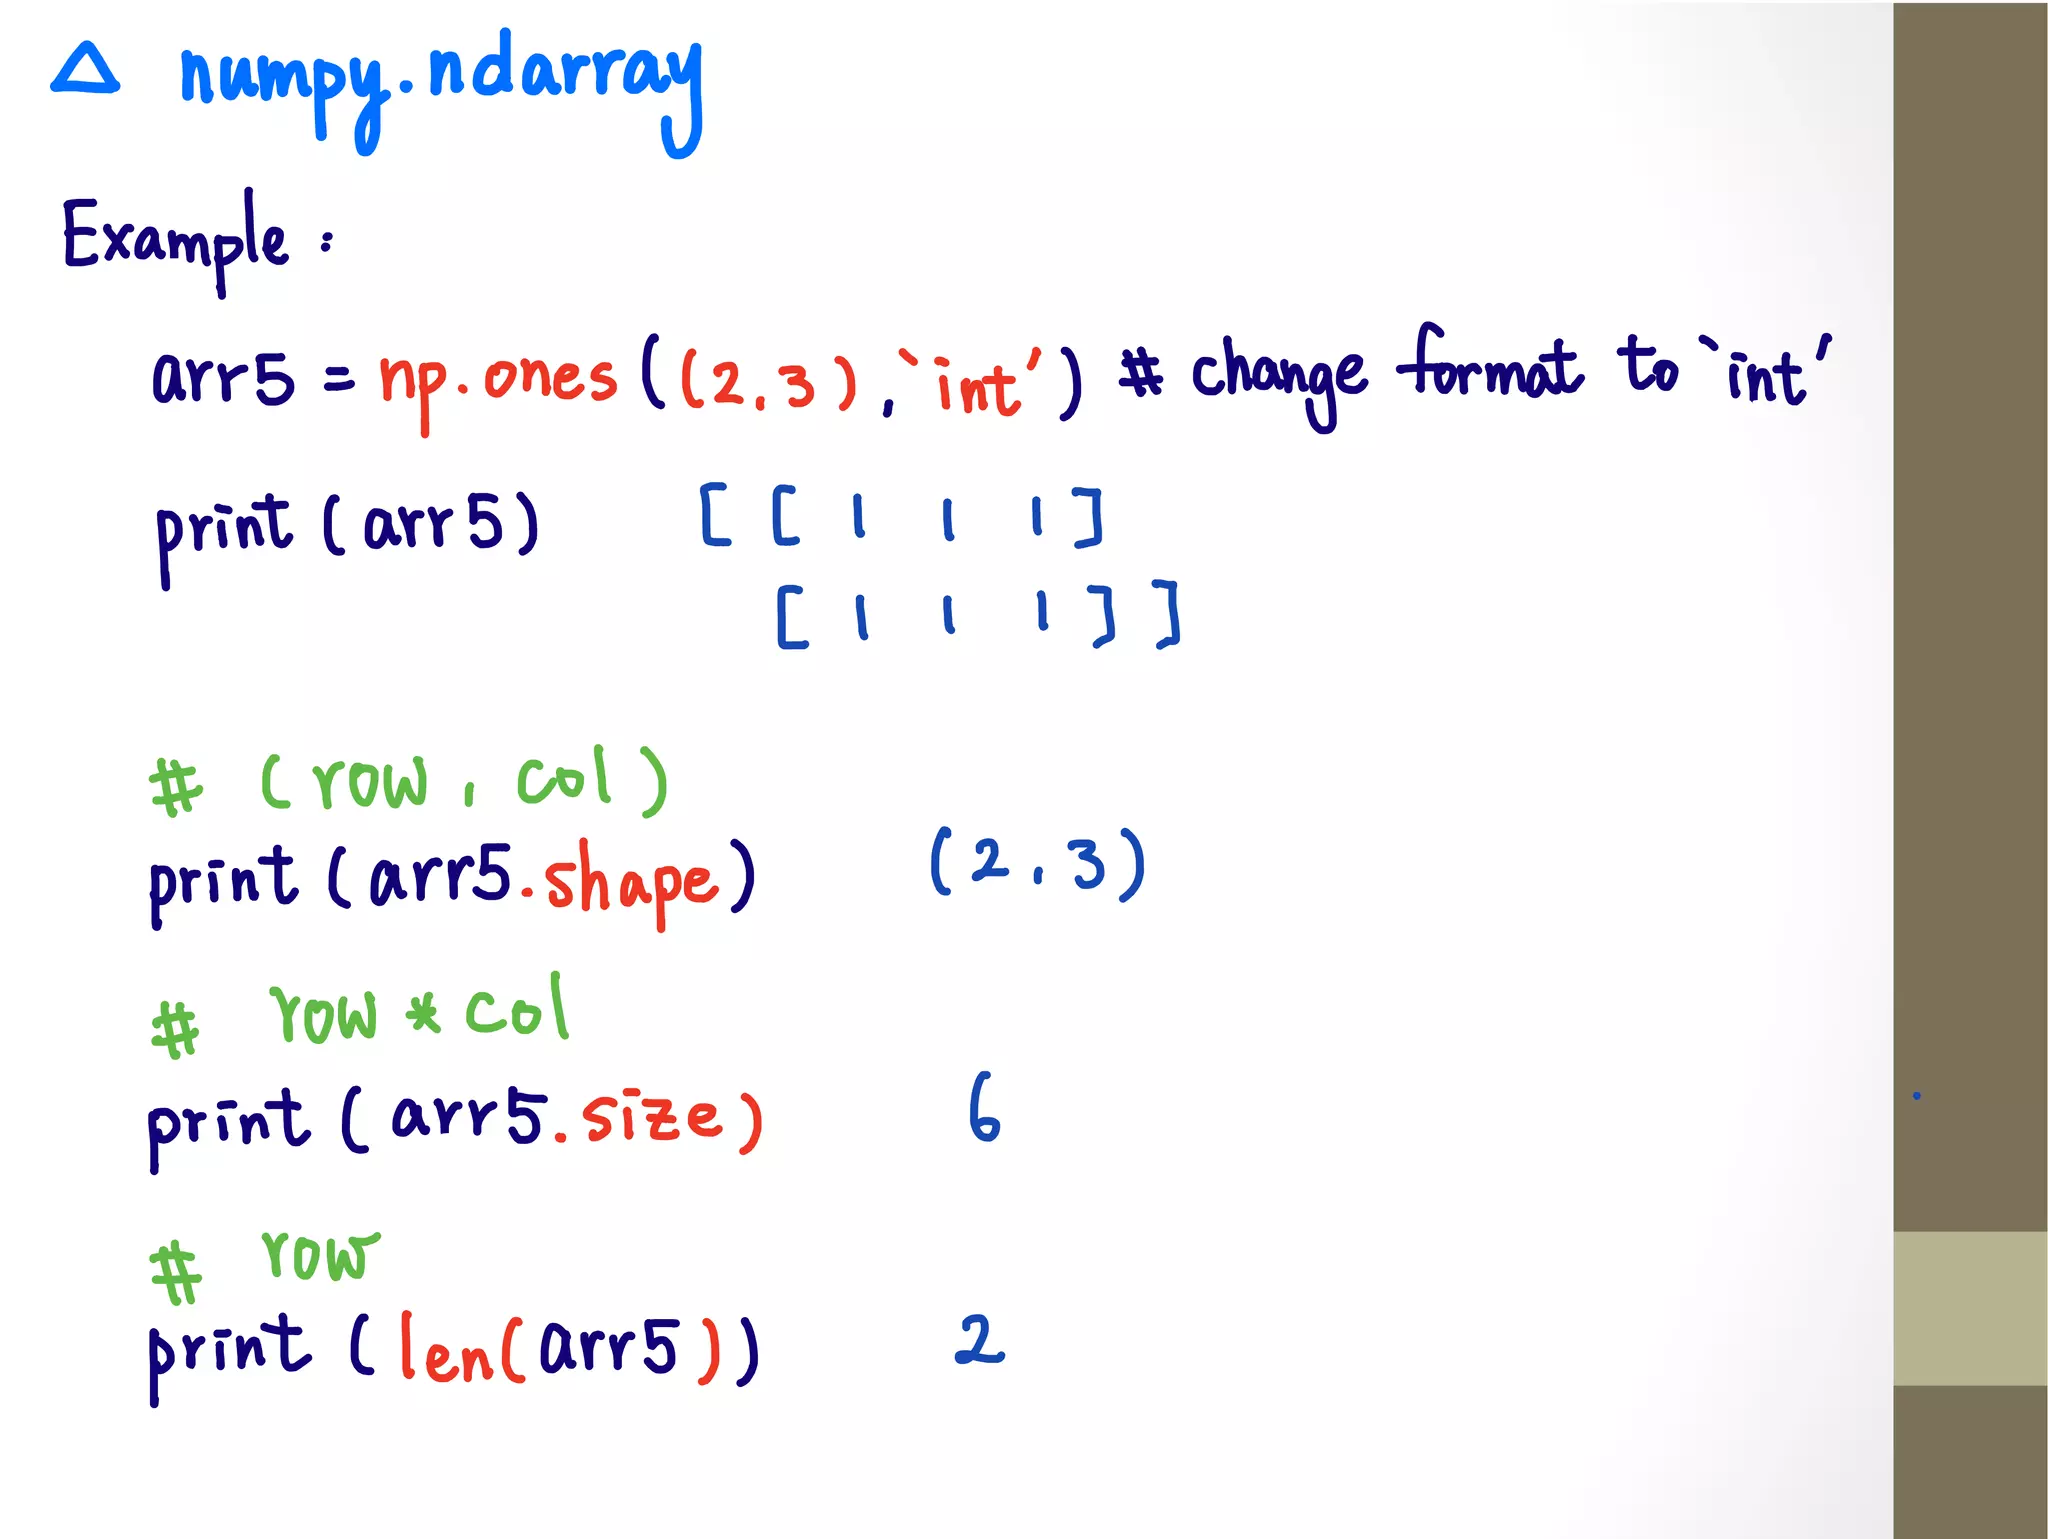 △ numpy.ndarray
Example :
arr5 = np.ones ((2,3), `int') # change format to `int'
print (arr5) [ [ 1 1 1 ]
[ 1 1 1 ] ]
# (row, col)
print (arr5.shape) (2,3)
# row * col
print (arr5.size) 6
# row
print (len(arr5)) 2